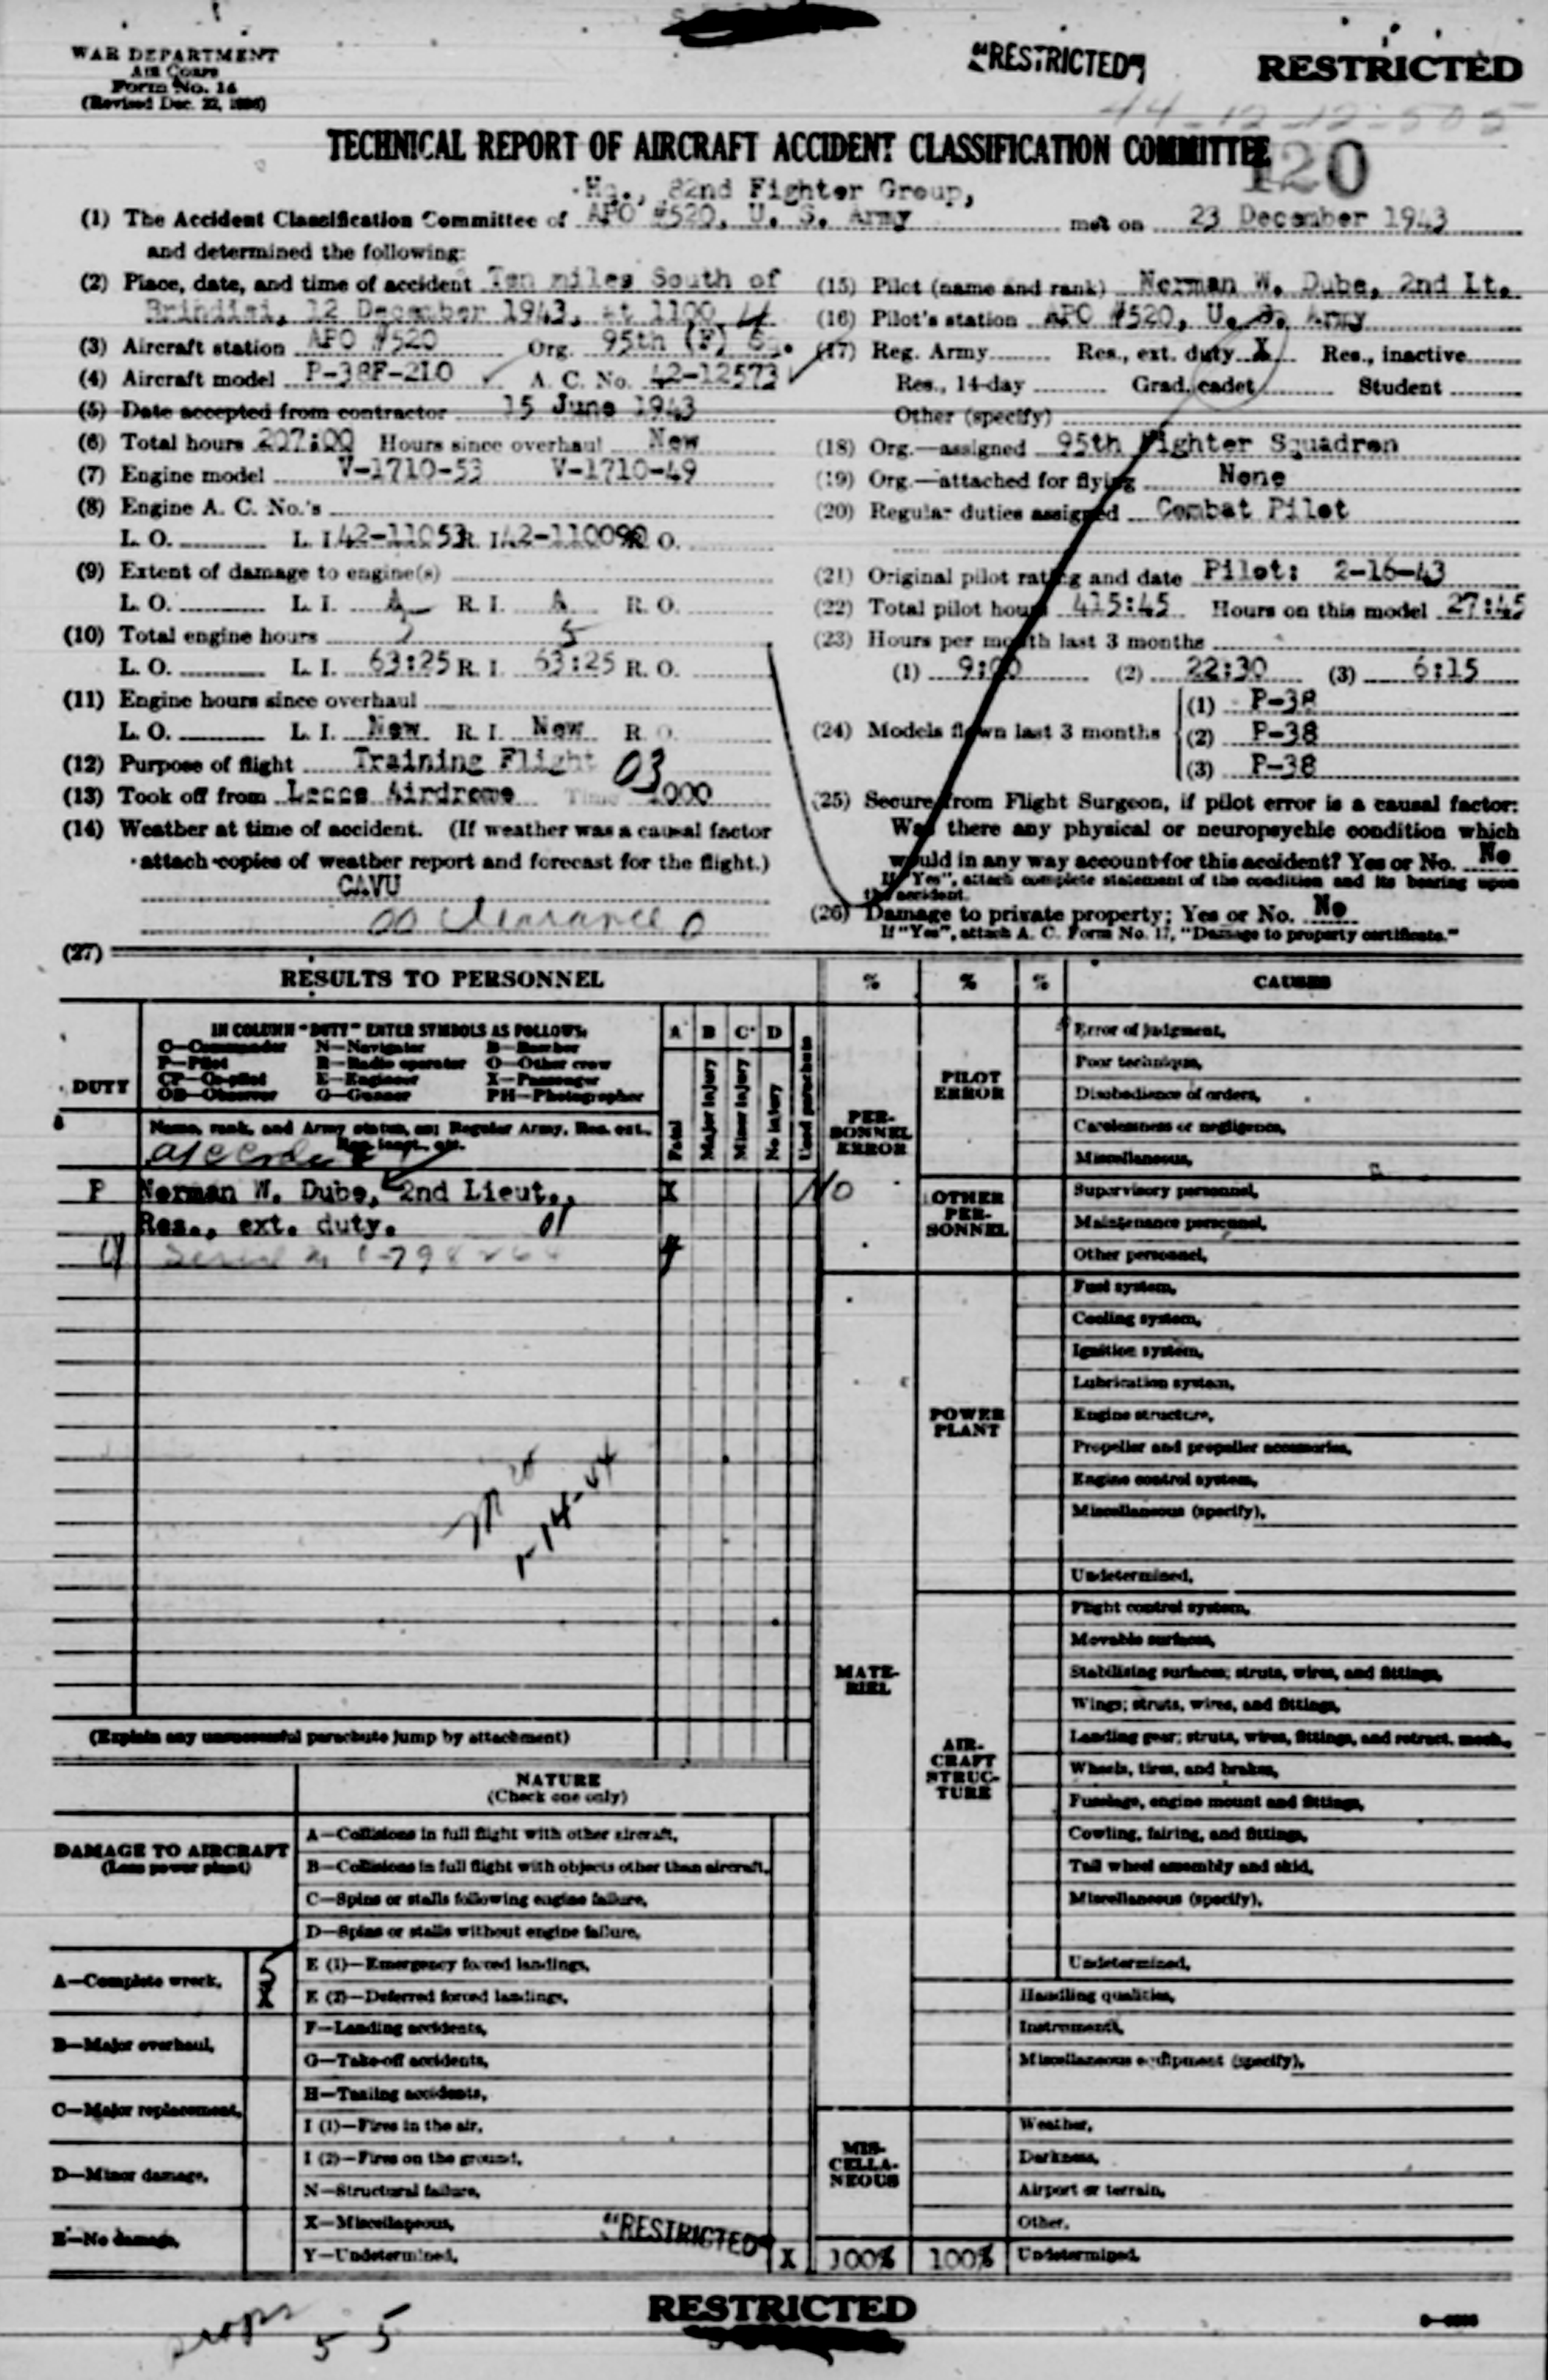 WAR DEPARTMENT
AIR CORPS
Form No. 14
"RESTRICTED"
RESTRICTED
TECHNICAL REPORT OF AIRCRAFT ACCIDENT CLASSIFICATION COMMITTEE
120
Hq., 82nd Fighter Group,
(1) The Accident Classification Committee of APO #520, U. S. Army met on 23 December 1943
and determined the following:
(2) Place, date, and time of accident Ten miles South of
Brindisi, 12 December 1943, at 1100
(3) Aircraft station APO #520 Org. 95th (F) Sq.
(4) Aircraft model P-38F-2LO A. C. No. 42-12573
(5) Date accepted from contractor 15 June 1943
(6) Total hours 207:00 Hours since overhaul New
(7) Engine model V-1710-53 V-1710-49
(8) Engine A. C. No.'s
L. O. L. I. 42-11053 R. I. R. O.
(9) Extent of damage to engine(s)
L. O. L. I. A R. I. A R. O.
(10) Total engine hours 5 5
L. O. L. I. 63:25 R. I. 63:25 R. O.
(11) Engine hours since overhaul
L. O. L. I. New R. I. New R. O.
(12) Purpose of flight Training Flight 03
(13) Took off from Lecce Airdrome Time 1000
(14) Weather at time of accident. (If weather was a causal factor
attach copies of weather report and forecast for the flight.)
CAVU
(15) Pilot (name and rank) Norman W. Dube, 2nd Lt.
(16) Pilot's station APO #520, U. S. Army
(17) Reg. Army Res., ext. duty X Res., inactive
Res., 14-day Grad. cadet Student
Other (specify)
(18) Org.—assigned 95th Fighter Squadron
(19) Org.—attached for flying None
(20) Regular duties assigned Combat Pilot
(21) Original pilot rating and date Pilot: 2-16-43
(22) Total pilot hours 415:45 Hours on this model 27:45
(23) Hours per month last 3 months
(1) 9:00 (2) 22:30 (3) 6:15
(24) Models flown last 3 months
(1) P-38
(2) P-38
(3) P-38
(25) Secure from Flight Surgeon, if pilot error is a causal factor:
Was there any physical or neuropsychic condition which
would in any way account for this accident? Yes or No. No
If "Yes", attach complete statement of the condition and its bearing upon
the accident.
(26) Damage to private property; Yes or No. No
If "Yes", attach A. C. Form No. 17, "Damage to property certificate."
(27)
RESULTS TO PERSONNEL
DUTY
IN COLUMN "DUTY" ENTER SYMBOLS AS FOLLOWS:
C—Commander N—Navigator B—Bomber
P—Pilot R—Radio operator O—Other crew
CP—Co-pilot E—Engineer X—Passenger
OB—Observer G—Gunner PH—Photographer
Name, rank, and Army status, as: Regular Army, Res. ext.,
A B C D
Fatal
Major injury
Minor injury
No injury
Used parachute
P Norman W. Dube, 2nd Lieut., X No
Res., ext. duty. 01
(Explain any unsuccessful parachute jump by attachment)
DAMAGE TO AIRCRAFT
(Less power plant)
A—Complete wreck, 5 X
B—Major overhaul,
C—Major replacement,
D—Minor damage,
E—No damage,
NATURE
(Check one only)
A—Collisions in full flight with other aircraft,
B—Collisions in full flight with objects other than aircraft,
C—Spins or stalls following engine failure,
D—Spins or stalls without engine failure,
E (1)—Emergency forced landings,
E (2)—Deferred forced landings,
F—Landing accidents,
G—Take-off accidents,
H—Taxiing accidents,
I (1)—Fires in the air,
I (2)—Fires on the ground,
N—Structural failure,
X—Miscellaneous,
Y—Undetermined, X
"RESTRICTED"
% % % CAUSES
PERSONNEL ERROR
PILOT ERROR
Error of judgment,
Poor technique,
Disobedience of orders,
Carelessness or negligence,
Miscellaneous,
OTHER PERSONNEL
Supervisory personnel,
Maintenance personnel,
Other personnel,
MATERIEL
POWER PLANT
Fuel system,
Cooling system,
Ignition system,
Lubrication system,
Engine structure,
Propeller and propeller accessories,
Engine control system,
Miscellaneous (specify),
Undetermined,
AIRCRAFT STRUCTURE
Flight control system,
Movable surfaces,
Stabilizing surfaces; struts, wires, and fittings,
Wings; struts, wires, and fittings,
Landing gear; struts, wires, fittings, and retract. mech.,
Wheels, tires, and brakes,
Fuselage, engine mount and fittings,
Cowling, fairing, and fittings,
Tail wheel assembly and skid,
Miscellaneous (specify),
Undetermined,
Handling qualities,
Instruments,
Miscellaneous equipment (specify),
MISCELLANEOUS
Weather,
Darkness,
Airport or terrain,
Other,
100% 100% Undetermined,
RESTRICTED
props 5 5